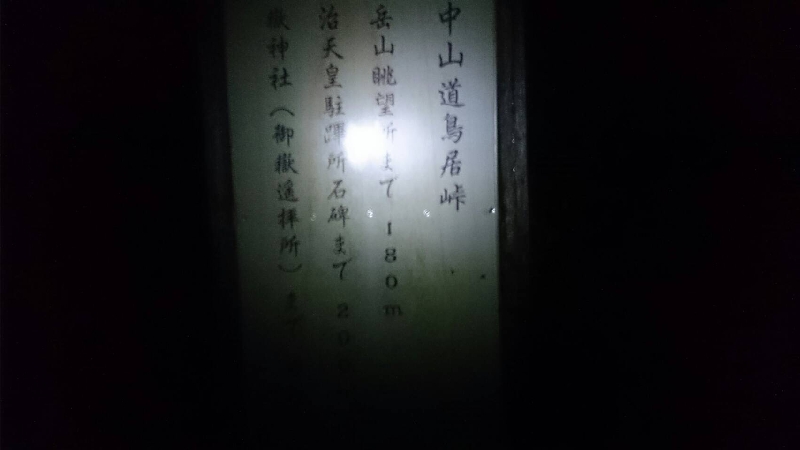 中山道鳥居峠
岳山眺望所まで 180m
治天皇駐蹕所石碑まで 20
嶽神社(御嶽遥拝所)ま